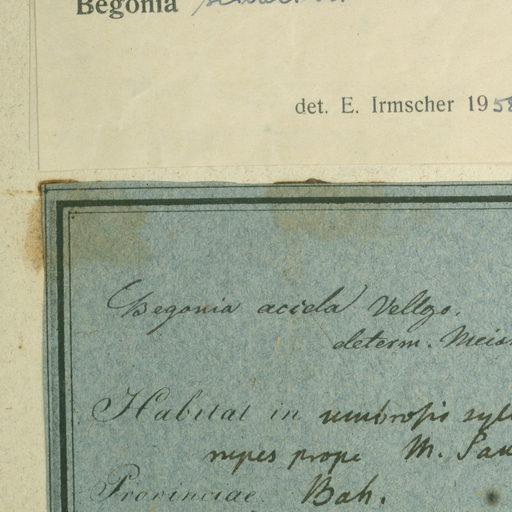 Begonia
det. E. Irmscher 1958
Begonia acida Vellozo.
determ. Meiss
Habitat in umbrosis sylv
rupes prope M. San
Provinciae Bah.